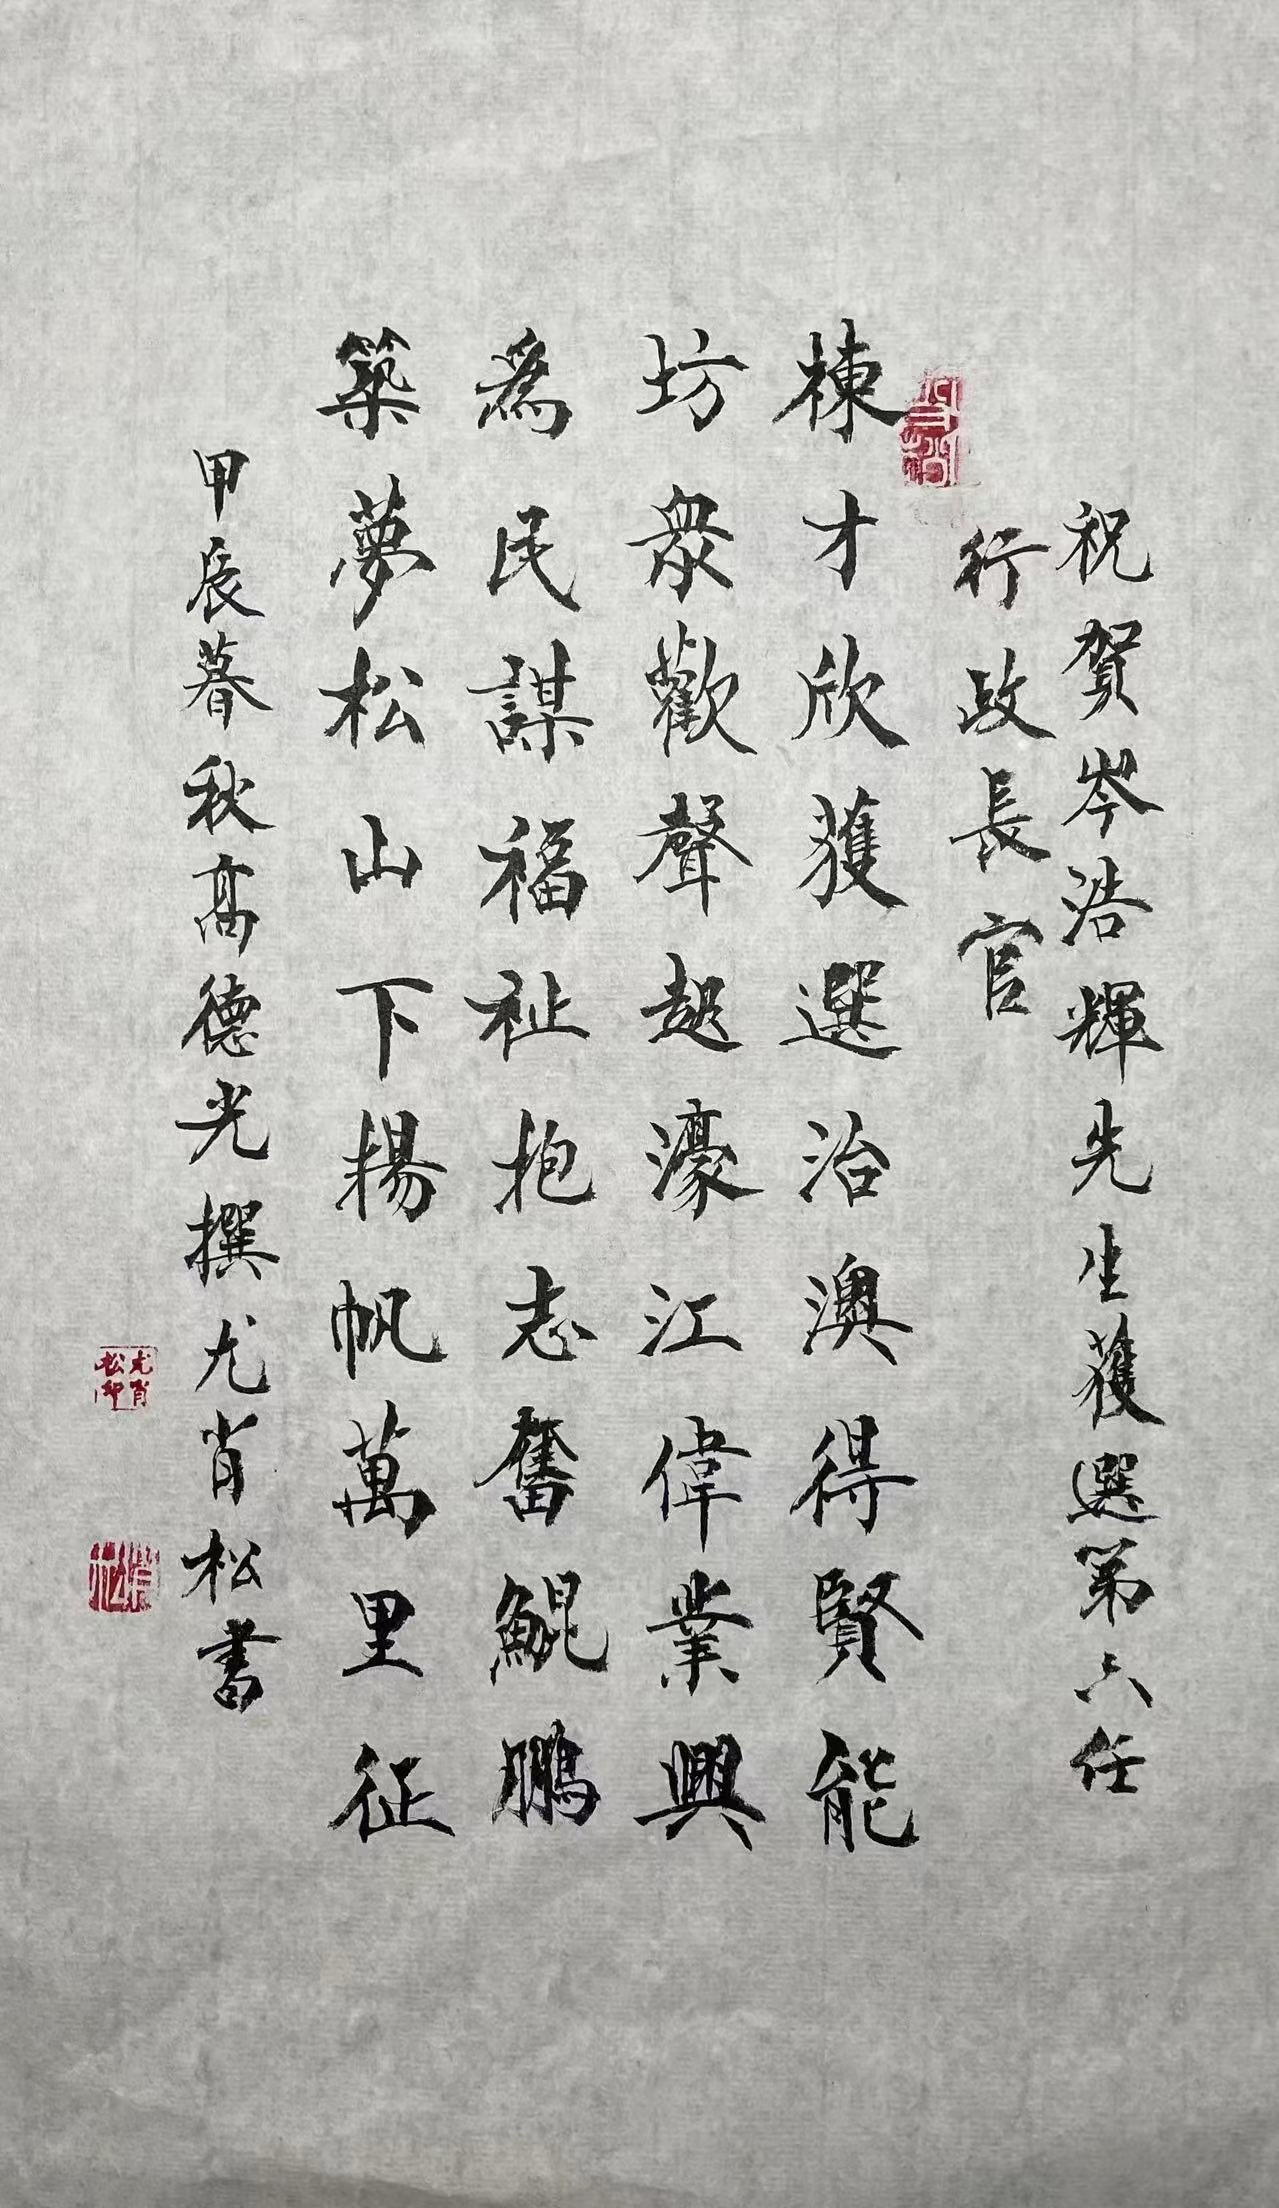 祝賀岑浩輝先生獲選第六任
行政長官
棟才欣獲選治澳得賢能
坊衆歡聲起濠江偉業興
為民謀福祉抱志奮鯤鵬
築夢松山下揚帆萬里征
甲辰暮秋高德光撰尤肖松書
尤肖松印